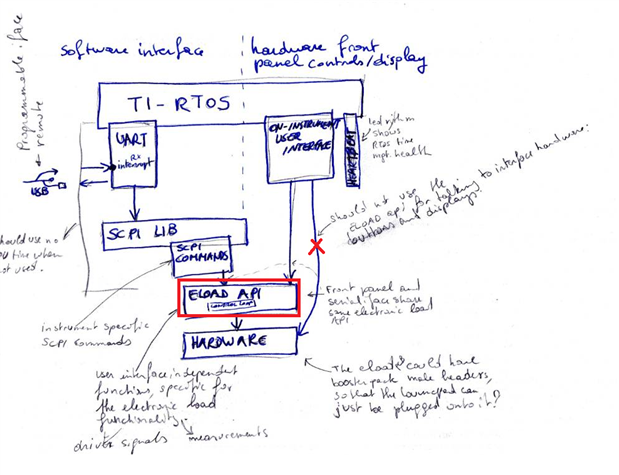 software interface
hardware front
panel controls/display
Programmable iface
remote
TI-RTOS
UART
Rx
interrupt
ON-INSTRUMENT
USER
INTERFACE
HEARTBEAT
led rithm
shows
RTOS time
mgt. health
USB
should not use the
ELOAD api for talking to interface hardware:
buttons and displays
SCPI LIB
SCPI
COMMANDS
should use no
CPU time when
not used.
ELOAD API
CONTROL LOOP
Front panel and
serial iface share
same electronic load
API
HARDWARE
instrument specific
SCPI commands
user interface independent
functions, specific for
the electronic load
functionality
driver signals
measurements
The eload could have
boosterpack male headers,
so that the launchpad can
just be plugged onto it?